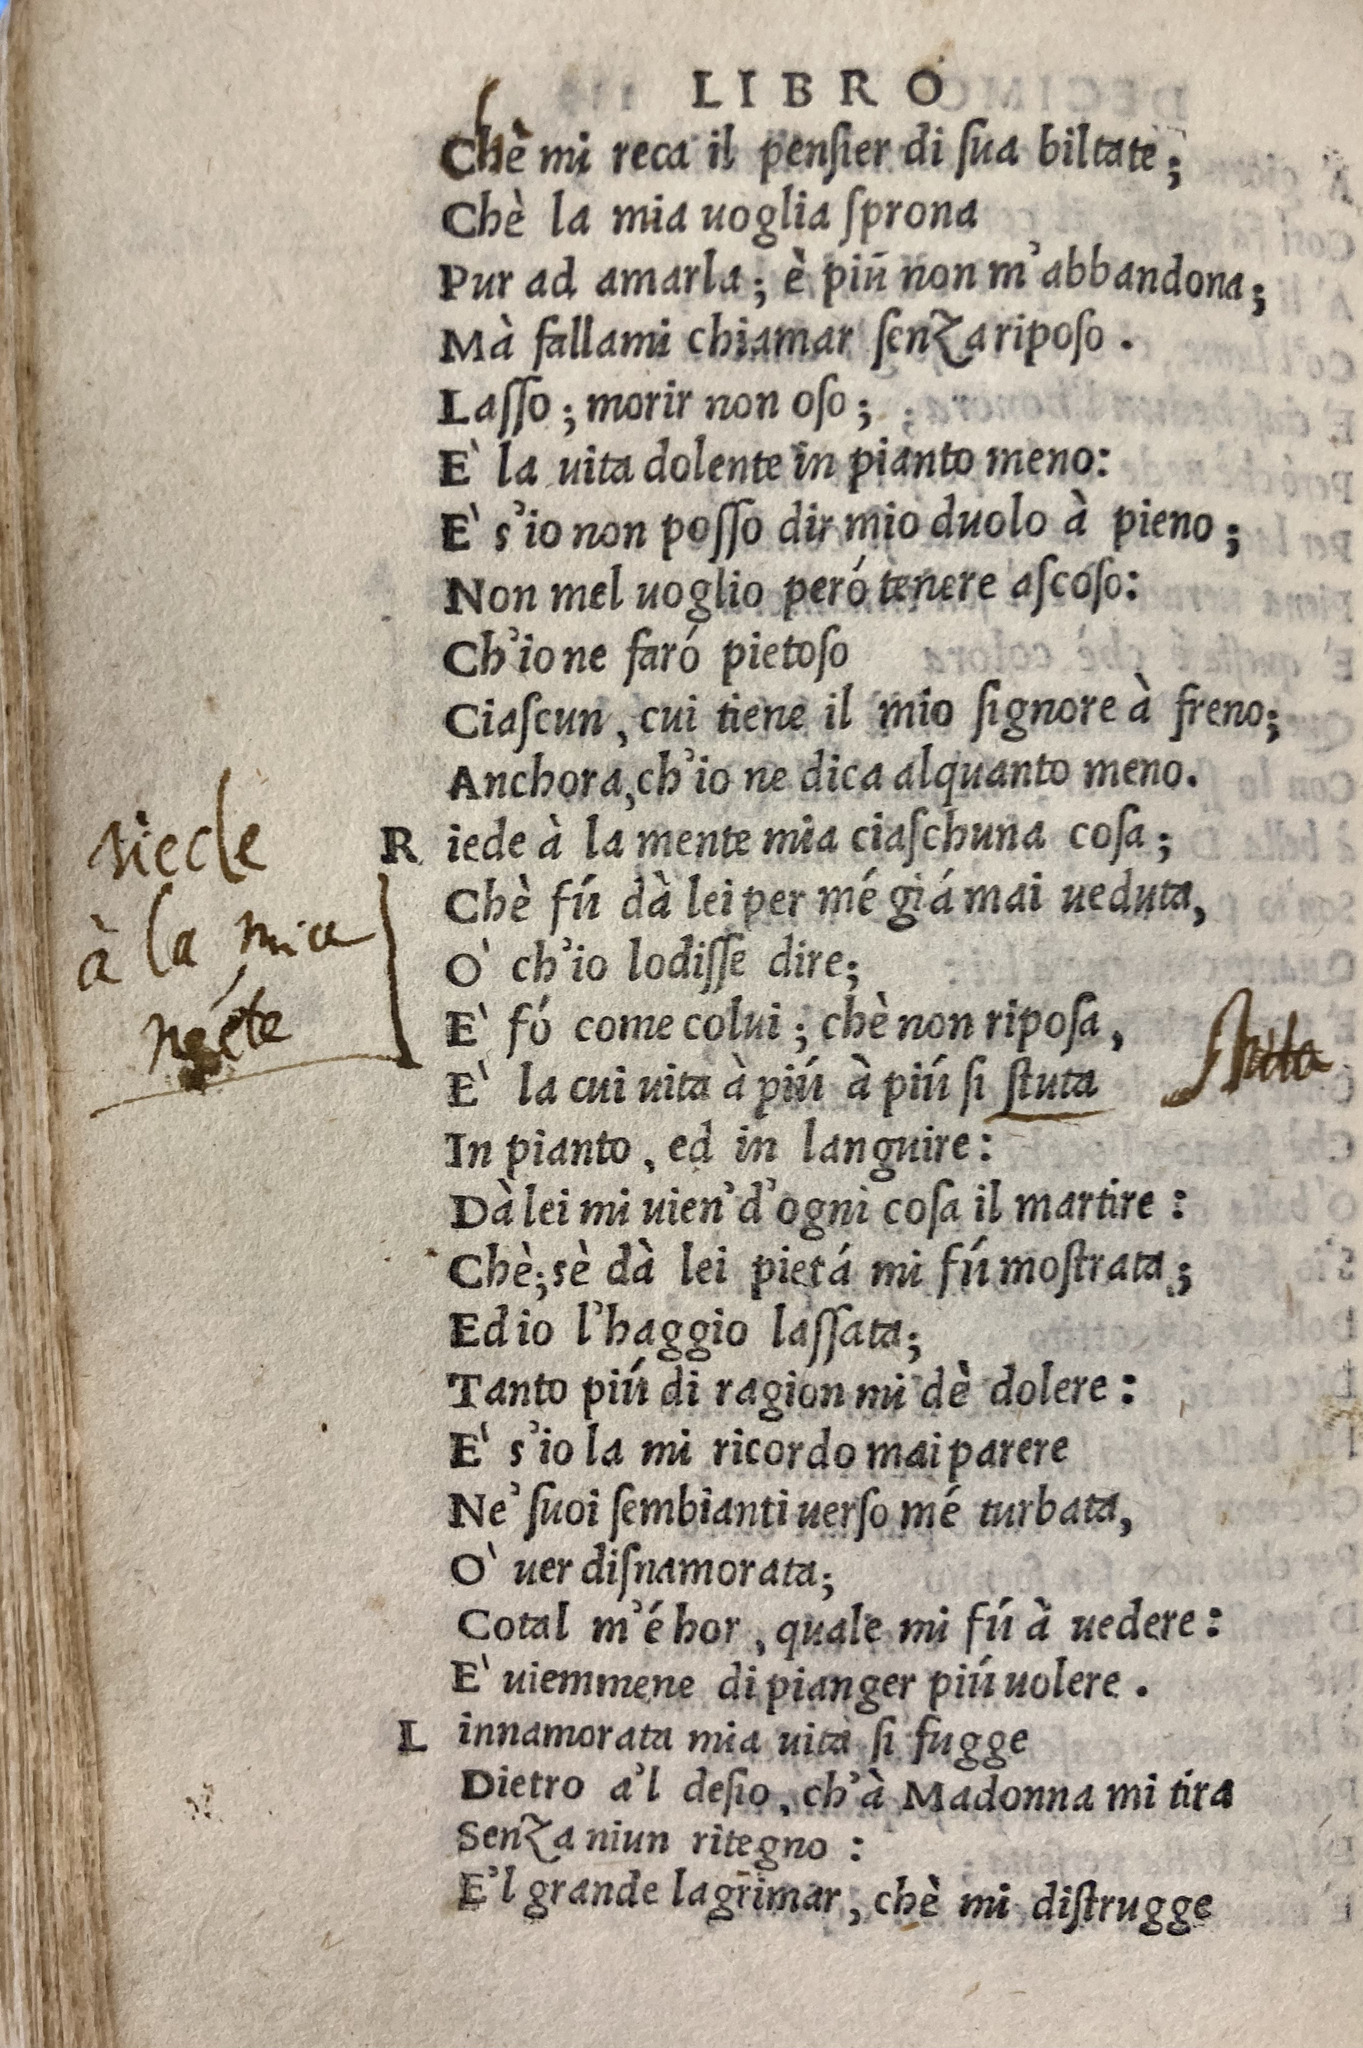 LIBRO
Chè mi reca il penſier di ſua biltate;
Chè la mia uoglia ſprona
Pur ad amarla; è piú non m'abbandona;
Mà fallami chiamar ſenza ripoſo.
Laſſo; morir non oſo;
E' la uita dolente in pianto meno:
E' s'io non poſſo dir mio duolo à pieno;
Non mel uoglio peró tenere aſcoſo:
Ch'io ne faró pietoſo
Ciaſcun, cui tiene il mio ſignore à freno;
Anchora, ch'io ne dica alquanto meno.
Riede à la mente mia ciaſchuna coſa;
Chè fú dà lei per mé giá mai ueduta,
O' ch'io lodiſſe dire;
E' fó come colui; chè non ripoſa,
E' la cui uita à piú à piú ſi ſtuta
In pianto, ed in languire:
Dà lei mi uien' d'ogni coſa il martire:
Chè; sè dà lei pietá mi fú moſtrata;
Ed io l'haggio laſſata;
Tanto piú di ragion mi dè dolere:
E' s'io la mi ricordo mai parere
Ne' ſuoi ſembianti uerſo mé turbata,
O' uer diſnamorata;
Cotal m'é hor, quale mi fú à uedere:
E' uiemmene di pianger piú uolere.
Linnamorata mia uita ſi fugge
Dietro a'l deſio, ch'à Madonna mi tira
Senza niun ritegno:
E'l grande lagrimar, chè mi diſtrugge
à la mia
ſtuta